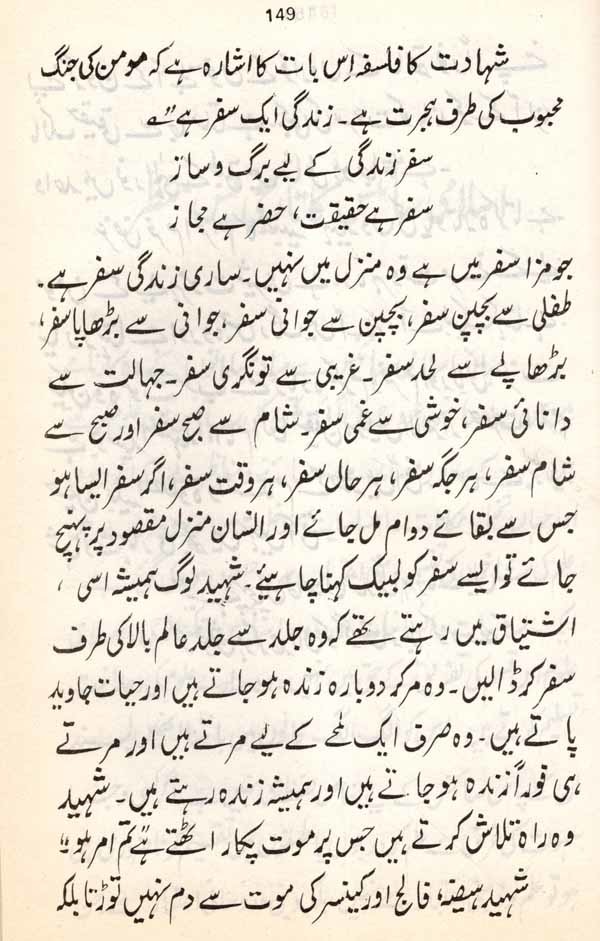 149
شہادت کا فلسفہ اِس بات کا اشارہ ہے کہ مومن کی جنگ
محبوب کی طرف ہجرت ہے۔ زندگی ایک سفر ہے"؎
سفر زندگی کے لیے برگ و ساز
سفر ہے حقیقت، حضر ہے مجاز
جو مزا سفر میں ہے وہ منزل میں نہیں۔ ساری زندگی سفر ہے۔
طفلی سے بچپن سفر، بچپن سے جوانی سفر، جوانی سے بڑھاپا سفر،
بڑھاپے سے لحد سفر۔ غریبی سے تونگری سفر۔ جہالت سے
دانائی سفر، خوشی سے غمی سفر۔ شام سے صبح سفر اور صبح سے
شام سفر، ہر جگہ سفر، ہر حال سفر، ہر وقت سفر، اگر سفر ایسا ہو
جس سے بقائے دوام مل جائے اور انسان منزل مقصود پر پہنچ
جائے تو ایسے سفر کو لبیک کہنا چاہیئے۔ شہید لوگ ہمیشہ اسی ،
اشتیاق میں رہتے تھے کہ وہ جلد سے جلد عالم بالا کی طرف
سفر کر ڈالیں۔ وہ مر کر دوبارہ زندہ ہو جاتے ہیں اور حیات جاوید
پاتے ہیں۔ وہ صرف ایک لمحے کے لیے مرتے ہیں اور مرتے
ہی فوراً زندہ ہو جاتے ہیں اور ہمیشہ زندہ رہتے ہیں۔ شہید
وہ راہ تلاش کرتے ہیں جس پر موت پکار اٹھتے ہے "تم امر ہو"
شہید ہیضہ، فالج اور کینسر کی موت سے دم نہیں توڑتا بلکہ